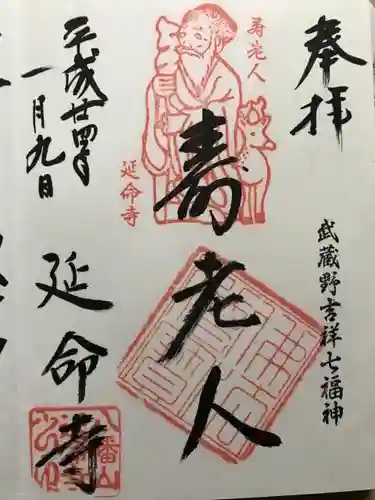 奉拝
武蔵野吉祥七福神
寿老人
寿老人
延命寺
平成廿四年
一月九日
延命寺